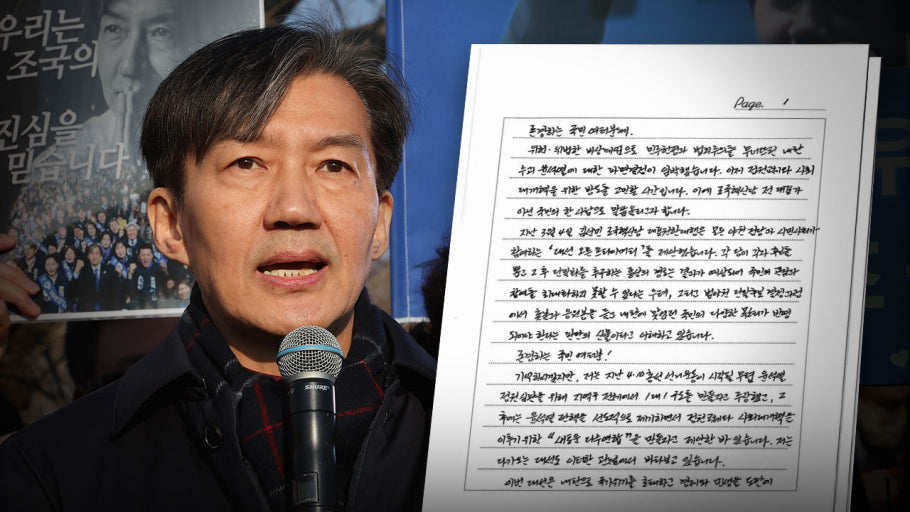 우리는
조국의
진심을
믿습니다
SHURE
Page. 1
존경하는 국민 여러분께.
위헌·위법한 비상계엄으로 민주헌정과 법치주의를 무너뜨린 내란
수괴 윤석열에 대한 파면결정이 임박했습니다. 이제 정권교체와 사회
대개혁을 위한 방도를 고민할 시간입니다. 이에 조국혁신당 전 대표가
아닌 국민의 한 사람으로 말씀을 드리고자 합니다.
지난 3월 4일 김선민 조국혁신당 대표권한대행은 모든 야권 정당과 시민사회가
참여하는 "대선 오픈 프라이머리"를 제안했습니다. 각 당이 각자 후보를
뽑고 그 후 단일화를 추구하는 통상의 경로는 결과가 예상되어 국민의 관심과
참여를 최대화하지 못할 수 있다는 우려, 그리고 범야권 단일후보 결정과정
에서 촛불과 응원봉을 들고 내란에 맞섰던 국민의 다양한 목소리가 반영
되어야 한다는 판단의 산물이라고 이해하고 있습니다.
존경하는 국민 여러분!
기억하시겠지만, 저는 지난 4·10 총선 선거운동이 시작될 무렵 윤석열
정권심판을 위해 지역구 전체에서 1대1 구도를 만들자고 주장했고, 그
후에는 윤석열 탄핵을 선도적으로 제기하면서 정권교체와 사회대개혁을
이루기 위한 "새로운 다수연합"을 만들자고 제안한 바 있습니다. 저는
다가오는 대선도 이러한 관점에서 바라보고 있습니다.
이번 대선은 내란으로 국가위기를 초래하고 경제와 민생을 도탄에